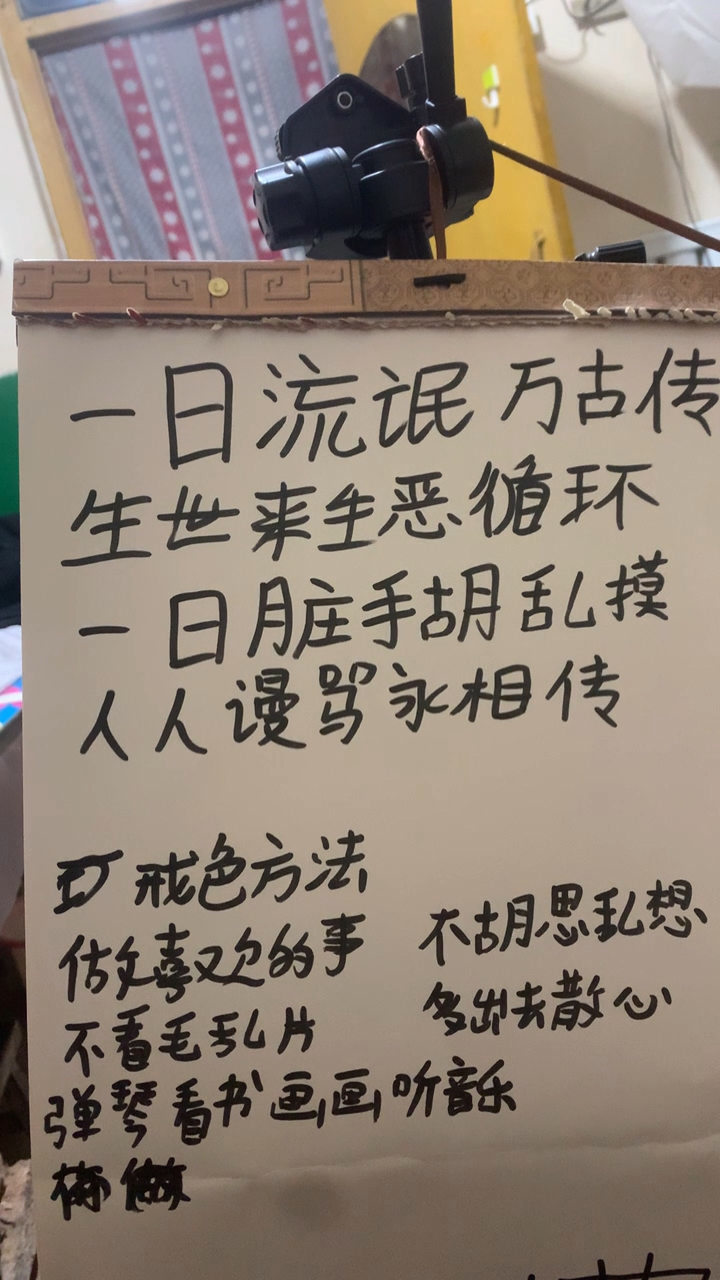 一日流氓万古传
生世来生恶循环
一日脏手胡乱摸
人人谩骂永相传
戒色方法
做喜欢的事
不胡思乱想
不看毛乱片
多出去散心
弹琴看书画画听音乐